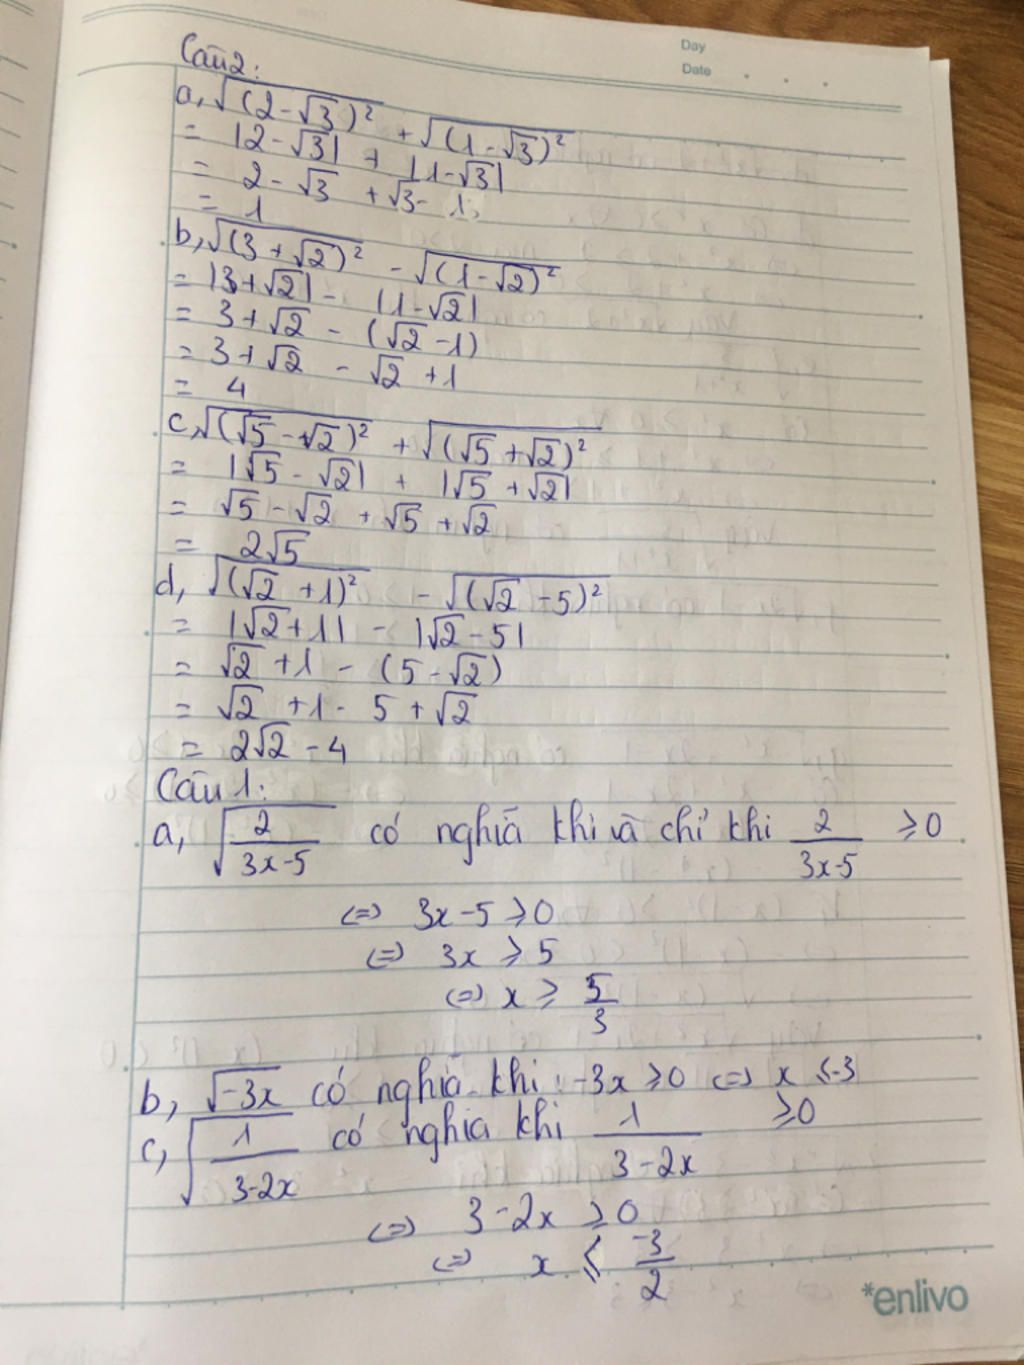 Day
Date
Câu 2:
a, √(2-√3)² + √(1-√3)²
= |2-√3| + |1-√3|
= 2-√3 + √3-1
= 1
b, √(3+√2)² - √(1-√2)²
= |3+√2| - |1-√2|
= 3+√2 - (√2-1)
= 3+√2 - √2+1
= 4
c, √(√5-√2)² + √(√5+√2)²
= |√5-√2| + |√5+√2|
= √5-√2+√5+√2
= 2√5
d, √(√2+1)² - √(√2-5)²
= |√2+1| - |√2-5|
= √2+1 - (5-√2)
= √2+1-5+√2
= 2√2-4
Câu 1:
a, √(2/(3x-5)) có nghĩa khi và chỉ khi 2/(3x-5) ≥0
<=> 3x-5≥0
<=> 3x ≥ 5
<=> x ≥ 5/3
b, √-3x có nghĩa khi: -3x ≥0 <=> x ≤-3
c, √(1/(3-2x)) có nghĩa khi 1/(3-2x) ≥0
<=> 3-2x ≥0
<=> x ≤ -3/2
*enlivo